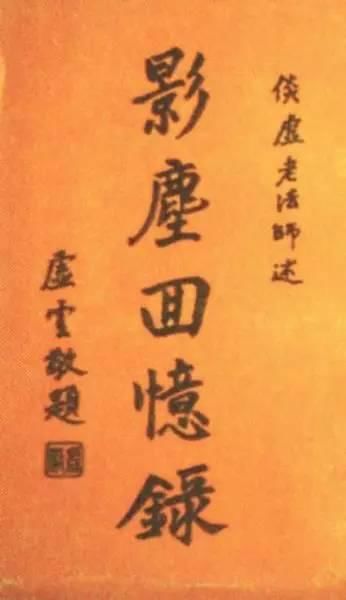 倓虛老法師述
影塵回憶錄
虛雲敬題